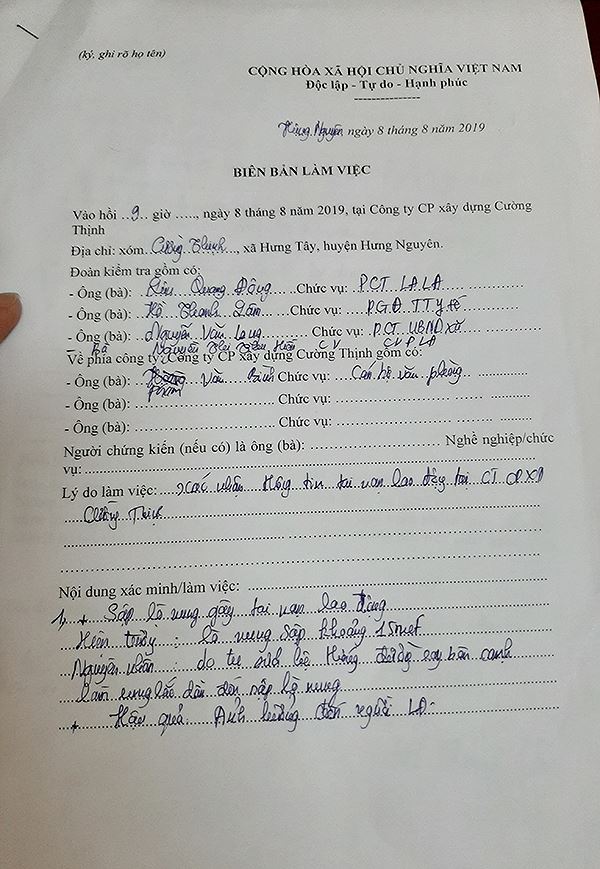 (ký, ghi rõ họ tên)
CỘNG HÒA XÃ HỘI CHỦ NGHĨA VIỆT NAM
Độc lập - Tự do - Hạnh phúc
---------------
Hưng Nguyên ngày 8 tháng 8 năm 2019
BIÊN BẢN LÀM VIỆC
Vào hồi ..9.. giờ ....., ngày 8 tháng 8 năm 2019, tại Công ty CP xây dựng Cường
Thịnh
Địa chỉ: xóm Cường Thịnh, xã Hưng Tây, huyện Hưng Nguyên.
Đoàn kiểm tra gồm có:
- Ông (bà): Quang Chức vụ: PCT
- Ông (bà): Hồ Thanh Chức vụ: P.G.Đ TTY tế
- Ông (bà): Nguyễn Văn Long Chức vụ: PCT UBND xã
- Bà Nguyễn Thị Hiền CV
Về phía công ty: Công ty CP xây dựng Cường Thịnh gồm có:
- Ông (bà): Phạm Văn Bình Chức vụ: Cán bộ văn phòng
- Ông (bà): Chức vụ
- Ông (bà): Chức vụ
Người chứng kiến (nếu có) là ông (bà): Nghề nghiệp/chức
vụ:
Lý do làm việc: xác nhận thông tin tai nạn lao động tại CT CPXD
Cường Thịnh
Nội dung xác minh/làm việc:
1, + Sập lò nung gây tai nạn lao động
Hiện trường: lò nung sập khoảng 15 mét
Nguyên nhân: do hệ thống bên cạnh
làm rung lắc dẫn đến sập lò nung
+ Hậu quả: Ảnh hưởng đến người LĐ